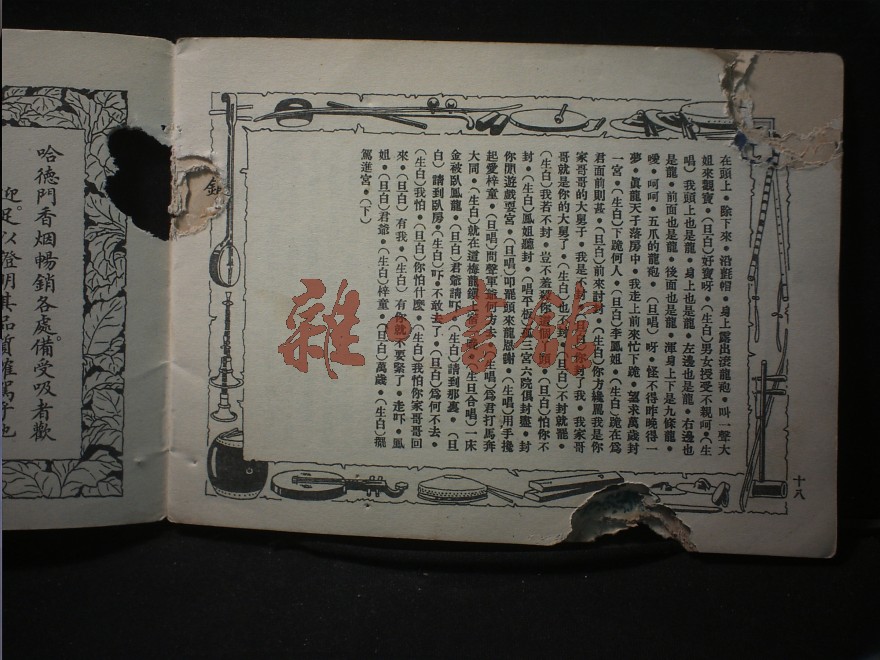 在頭上・除下來・沿氈帽・身上露出滾龍袍・叫一聲大
姐來觀寶・(旦白)好寶呀・(生白)男女授受不親呵・(生
唱)我頭上也是龍・身上也是龍・左邊也是龍・右邊也
是龍・前面也是龍・後面也是龍・渾身上下是九條龍・
噯・呵呵・五爪的龍袍・(旦唱)呀・怪不得昨晚得一
夢・眞龍天子落房中・我走上前來忙下跪・望求萬歲封
一宮・(生白)下跪何人・(旦白)李鳳姐・(生白)跪在爲
君面前則甚・(旦白)前來討封・(生白)你方纔罵我是你
家哥哥的大舅子・我是不封・(旦白)你封了我・我家哥
哥就是你的大舅了・(生白)也不封・(旦白)不封就罷・
(生白)我若不封・豈不羞殺你・(旦白)怕你不
封・(生白)鳳姐聽封・(唱平板)孤三宮六院俱封盡・封
你閒遊戲耍宮・(旦唱)叩罷頭來龍恩謝・(生唱)用手攙
起愛梓童・(旦唱)問聲軍爺何方去・(生唱)爲君打馬奔
大同・(生白)就在這梅龍鎮・(生旦合唱)一床
金被臥鳳龍・(旦白)君爺請吓・(生白)請到那裏・(旦
白)請到臥房・(生白)吓・不敢去了・(旦白)爲何不去・
(生白)我怕・(旦白)你怕什麽・(生白)我怕你家哥哥回
來・(旦白)有我・(生白)有你就不要緊了・走吓・鳳
姐・(旦白)君爺・(生白)梓童・(旦白)萬歲・(生白)擺
駕進宮・(下)
十八
雜・書館
哈德門香烟暢銷各處備受吸者歡
迎。足以證明其品質確爲